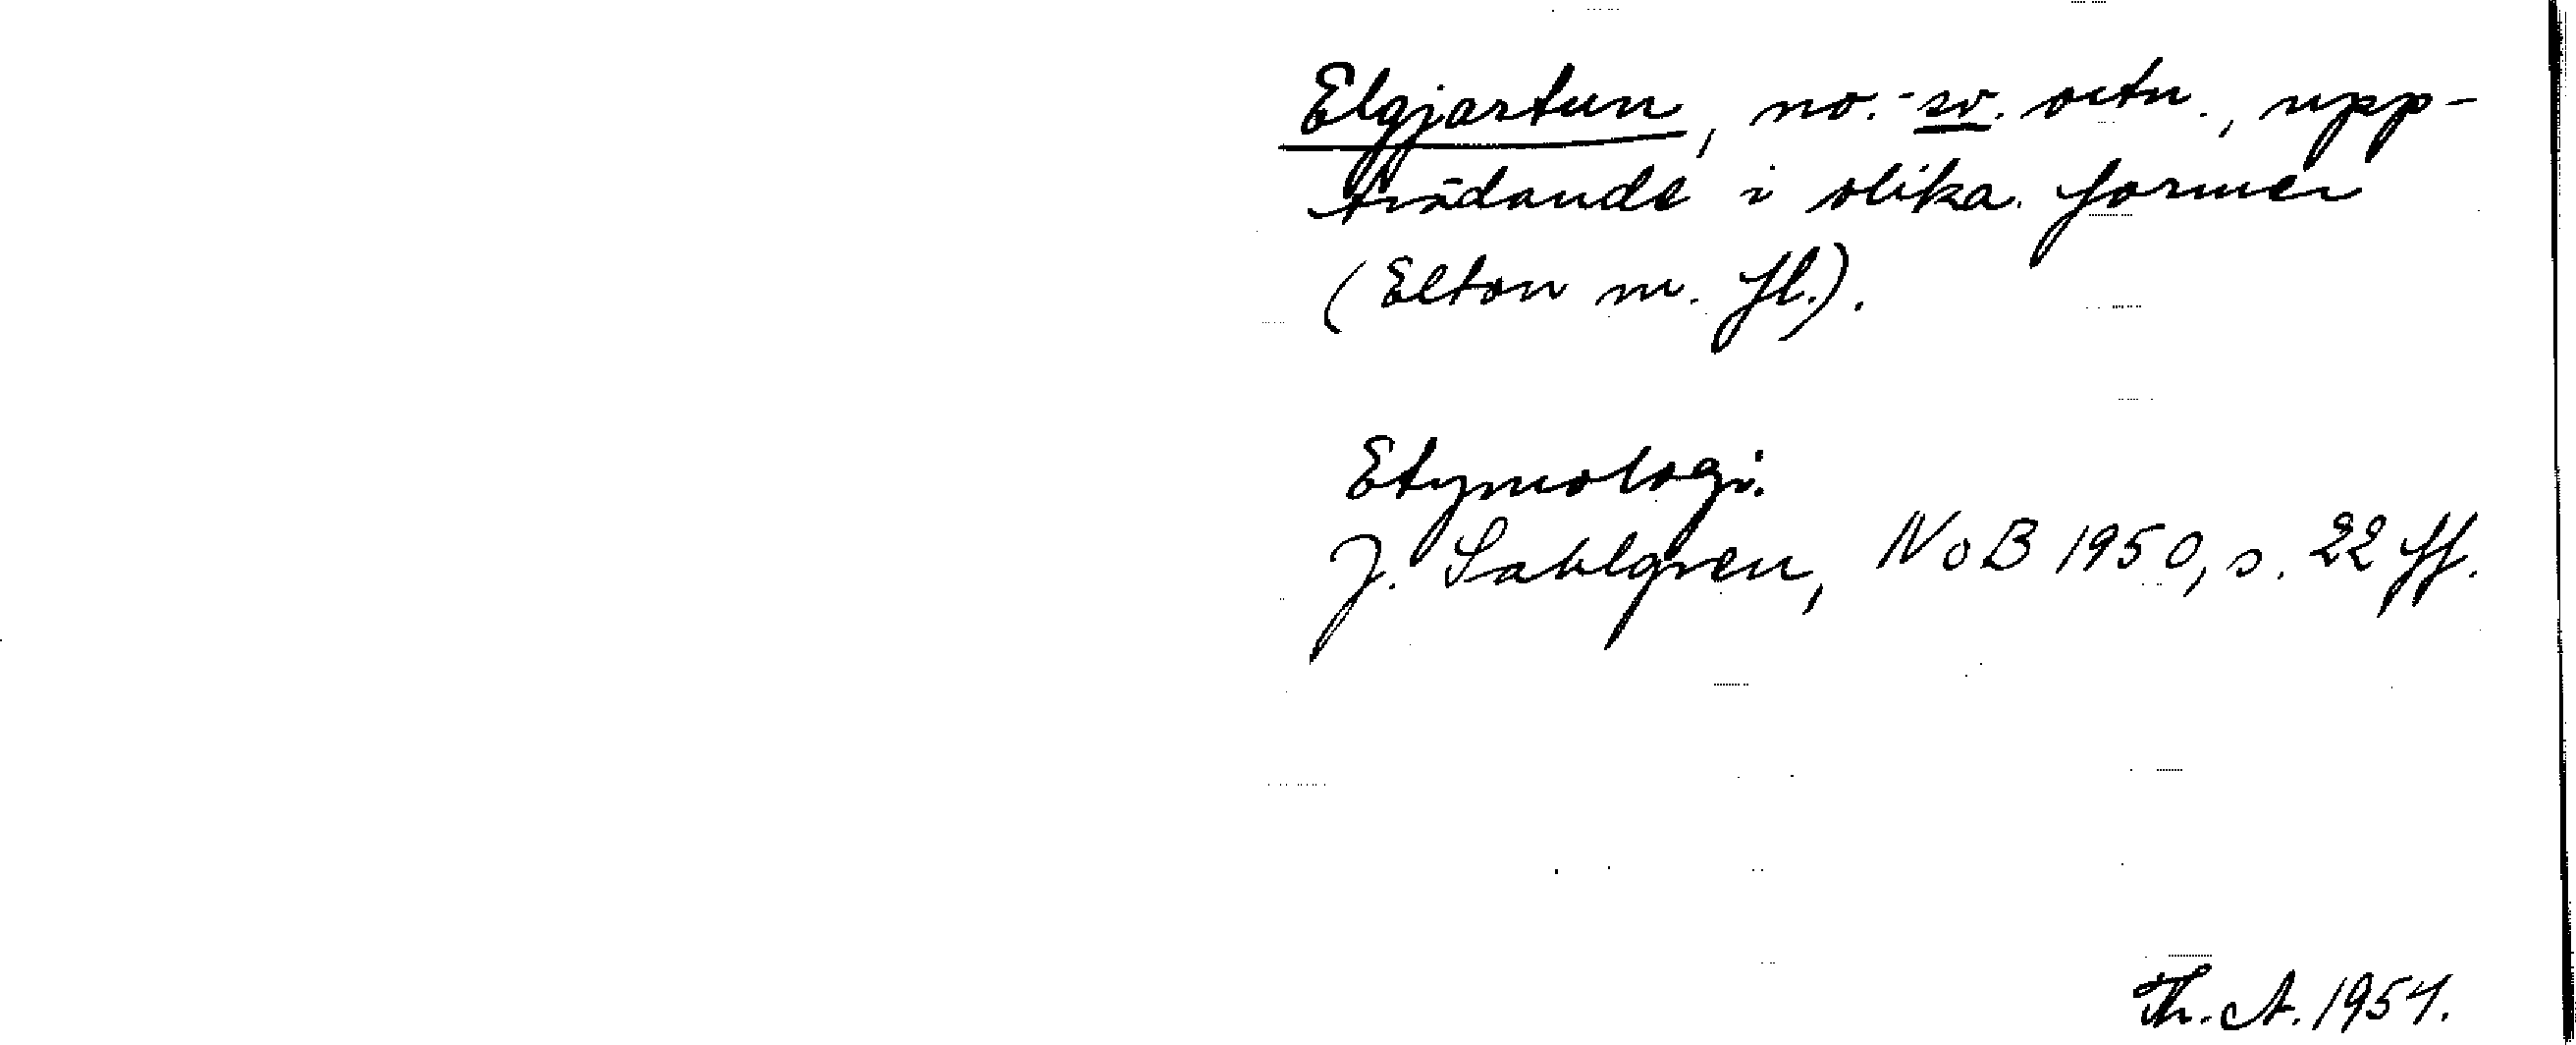 Elgjartun, no.-sv. ortn., upp-
trädande i olika former
(Elton m. fl.).
Etymologi.
J. Sahlgren, NoB 1950, s. 22 ff.
Th. A. 1954.